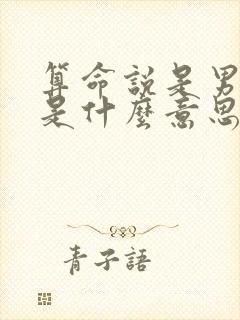 算命說是男
是什麼意思
青子語